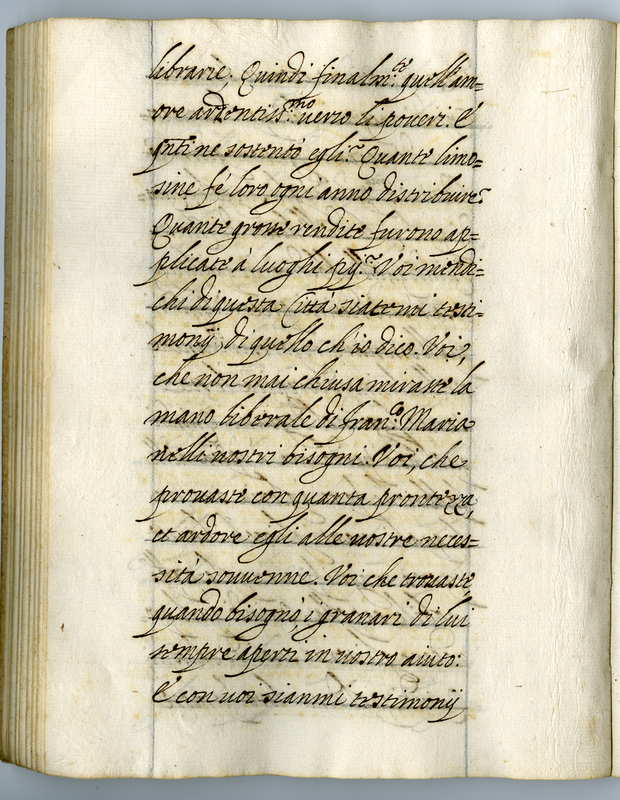 librarie. Quindi finalm:te quell'am=
ore ardentiss:mo verso li poueri. E'
qnti ne sostentò egli? Quante limo=
sine fé loro ogni anno distribuire?
Quante grosse rendite furono ap=
plicate à luoghi pij? Voi mendi=
chi di questa Città siatemi testi=
monij di quello ch'io dico. Voi,
che non mai chiusa miraste la
mano liberale di Fran:co Maria
nelli uostri bisogni. Voi, che
prouaste con quanta prontezza,
et ardore egli alle uostre neces=
sità souuenne. Voi che trouaste
quando bisognò, i granari di lui
sempre aperti in uostro aiuto:
E con uoi sianmi testimonij